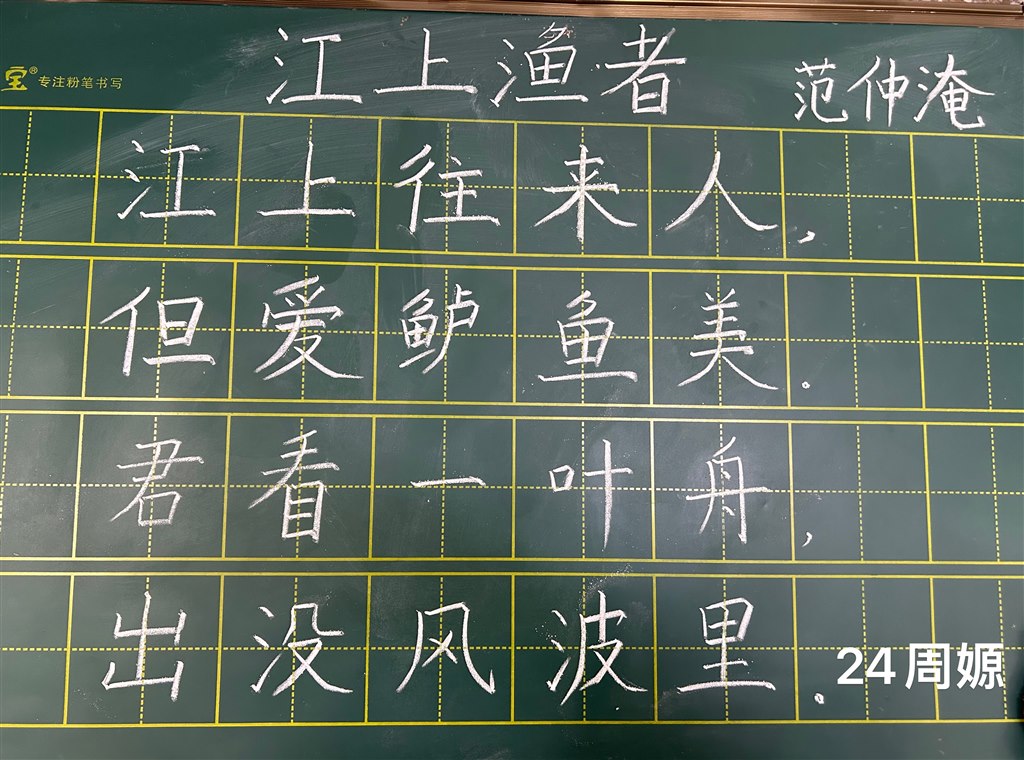 江上渔者 范仲淹
宝® 专注粉笔书写
江上往来人,
但爱鲈鱼美.
君看一叶舟,
出没风波里.
24周嫄